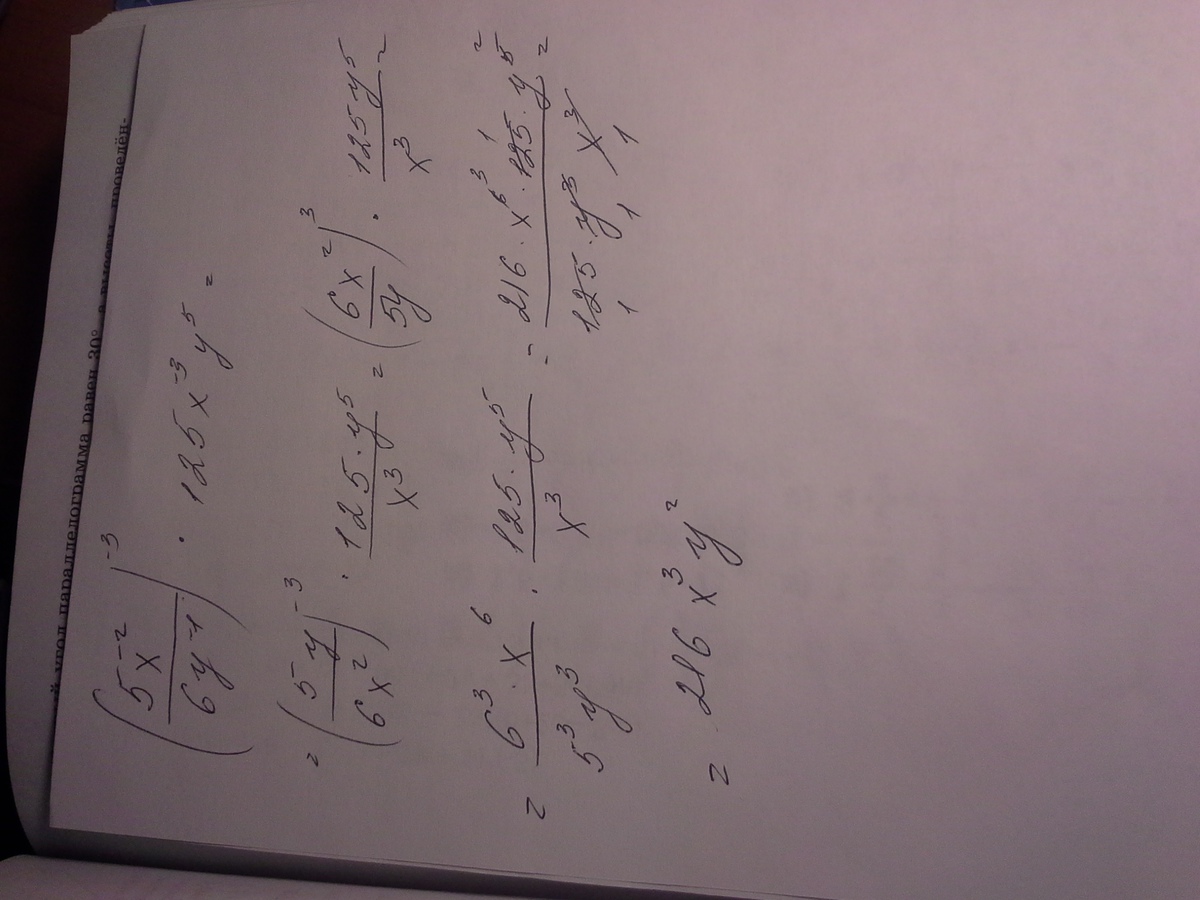 й угол параллелограмма равен 30°, а высоты, проведён-
(5x⁻²/6y⁻¹)⁻³ · 125x⁻³y⁵ =
= (5y/6x²)⁻³ · 125·y⁵/x³ = (6x²/5y)³ · 125y⁵/x³ =
= 6³·x⁶/5³y³ · 125·y⁵/x³ = 216·x⁶ ³·125 ¹·y⁵ ²/125 ₁·y³ ₁ x³ ₁ =
= 216x³y²